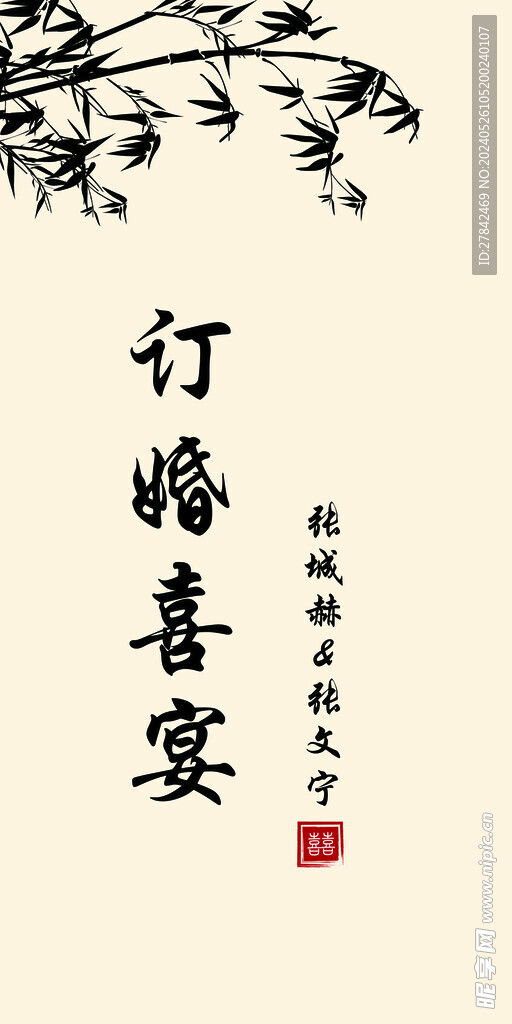 订婚喜宴
张城赫&张文宁
囍
ID:27842469 NO:20240526105200240107
昵享网 www.nipic.cn